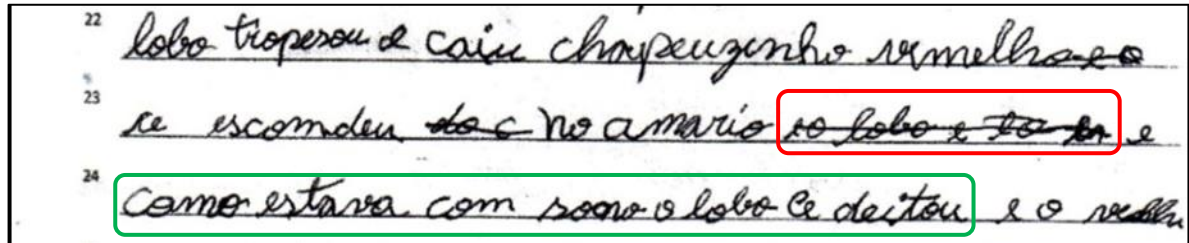 22 lobo troperou e caiu chapeuzinho vermelho e o
23 ce escomdeu do c no amario eo lobo e to en e
24 como estava com sono o lobo ce deitou e o